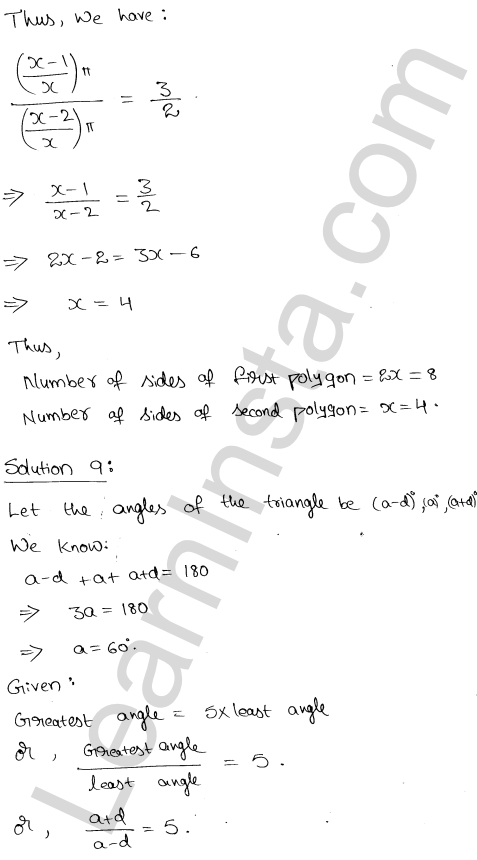 Thus, We have:
((x-1)/x)π / ((x-2)/x)π = 3/2
⇒ (x-1)/(x-2) = 3/2
⇒ 2x-2 = 3x-6
⇒ x = 4
Thus,
Number of sides of first polygon = 2x = 8
Number of sides of second polygon = x = 4.
Solution 9:
Let the angles of the triangle be (a-d)°, a°, (a+d)°
We know:
a-d + a + a+d = 180
⇒ 3a = 180
⇒ a = 60°.
Given:
Greatest angle = 5x least angle
or, Greatest angle / least angle = 5.
or, (a+d)/(a-d) = 5.
LearnInsta.com